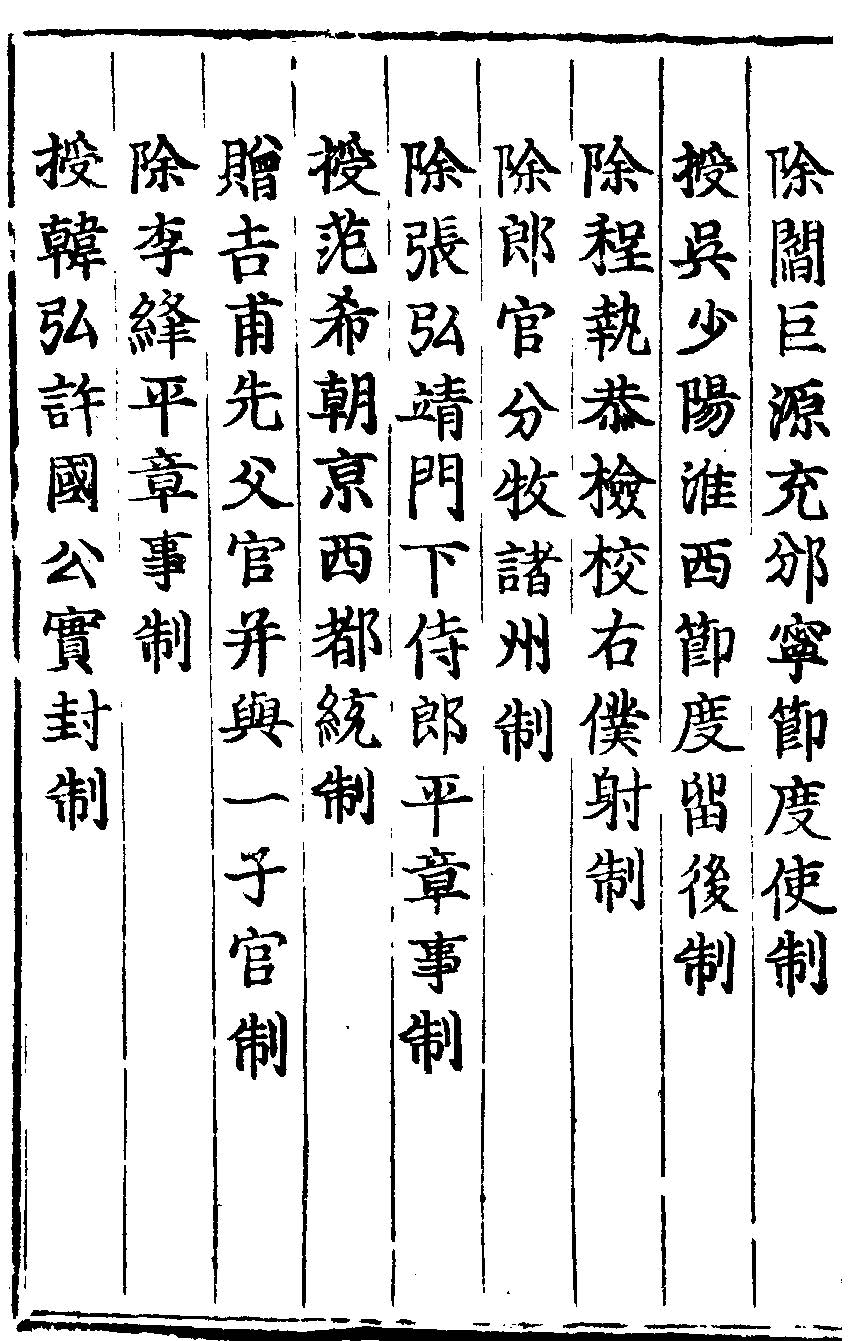 除閻巨源充邠寧節度使制
授吳少陽淮西節度留後制
除程執恭檢校右僕射制
除郎官分牧諸州制
除張弘靖門下侍郎平章事制
授范希朝京西都統制
贈吉甫先父官并與一子官制
除李絳平章事制
授韓弘許國公實封制